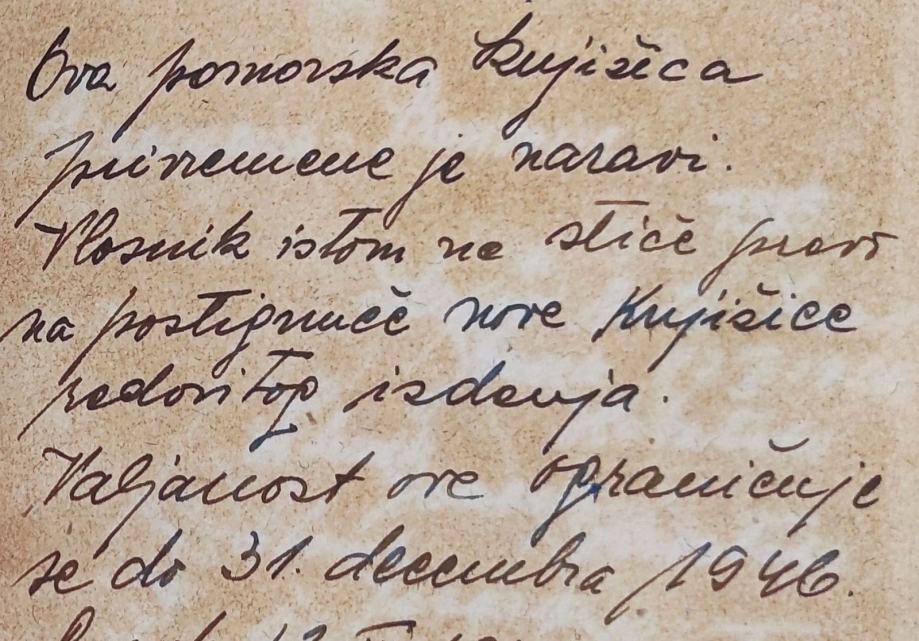 Ova pomorska knjižica
privremene je naravi.
Vlasnik istom ne stiče pravo
na postignuće nove knjižice
redovitog izdanja.
Valjanost ove ograničuje
se do 31. decembra 1946.